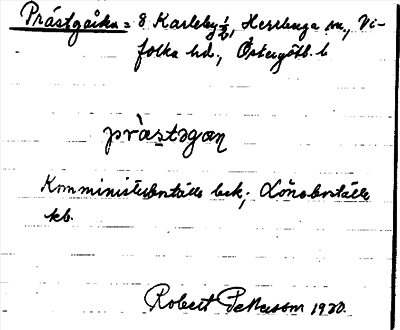 Prästgåln = 8 Karleby ½, Herrberga sn, Vi-
folka hd, Östergötl. l
prà̀stgan
Komministerboställe bek; Löneboställe
kb.
Robert Pettersson 1930.